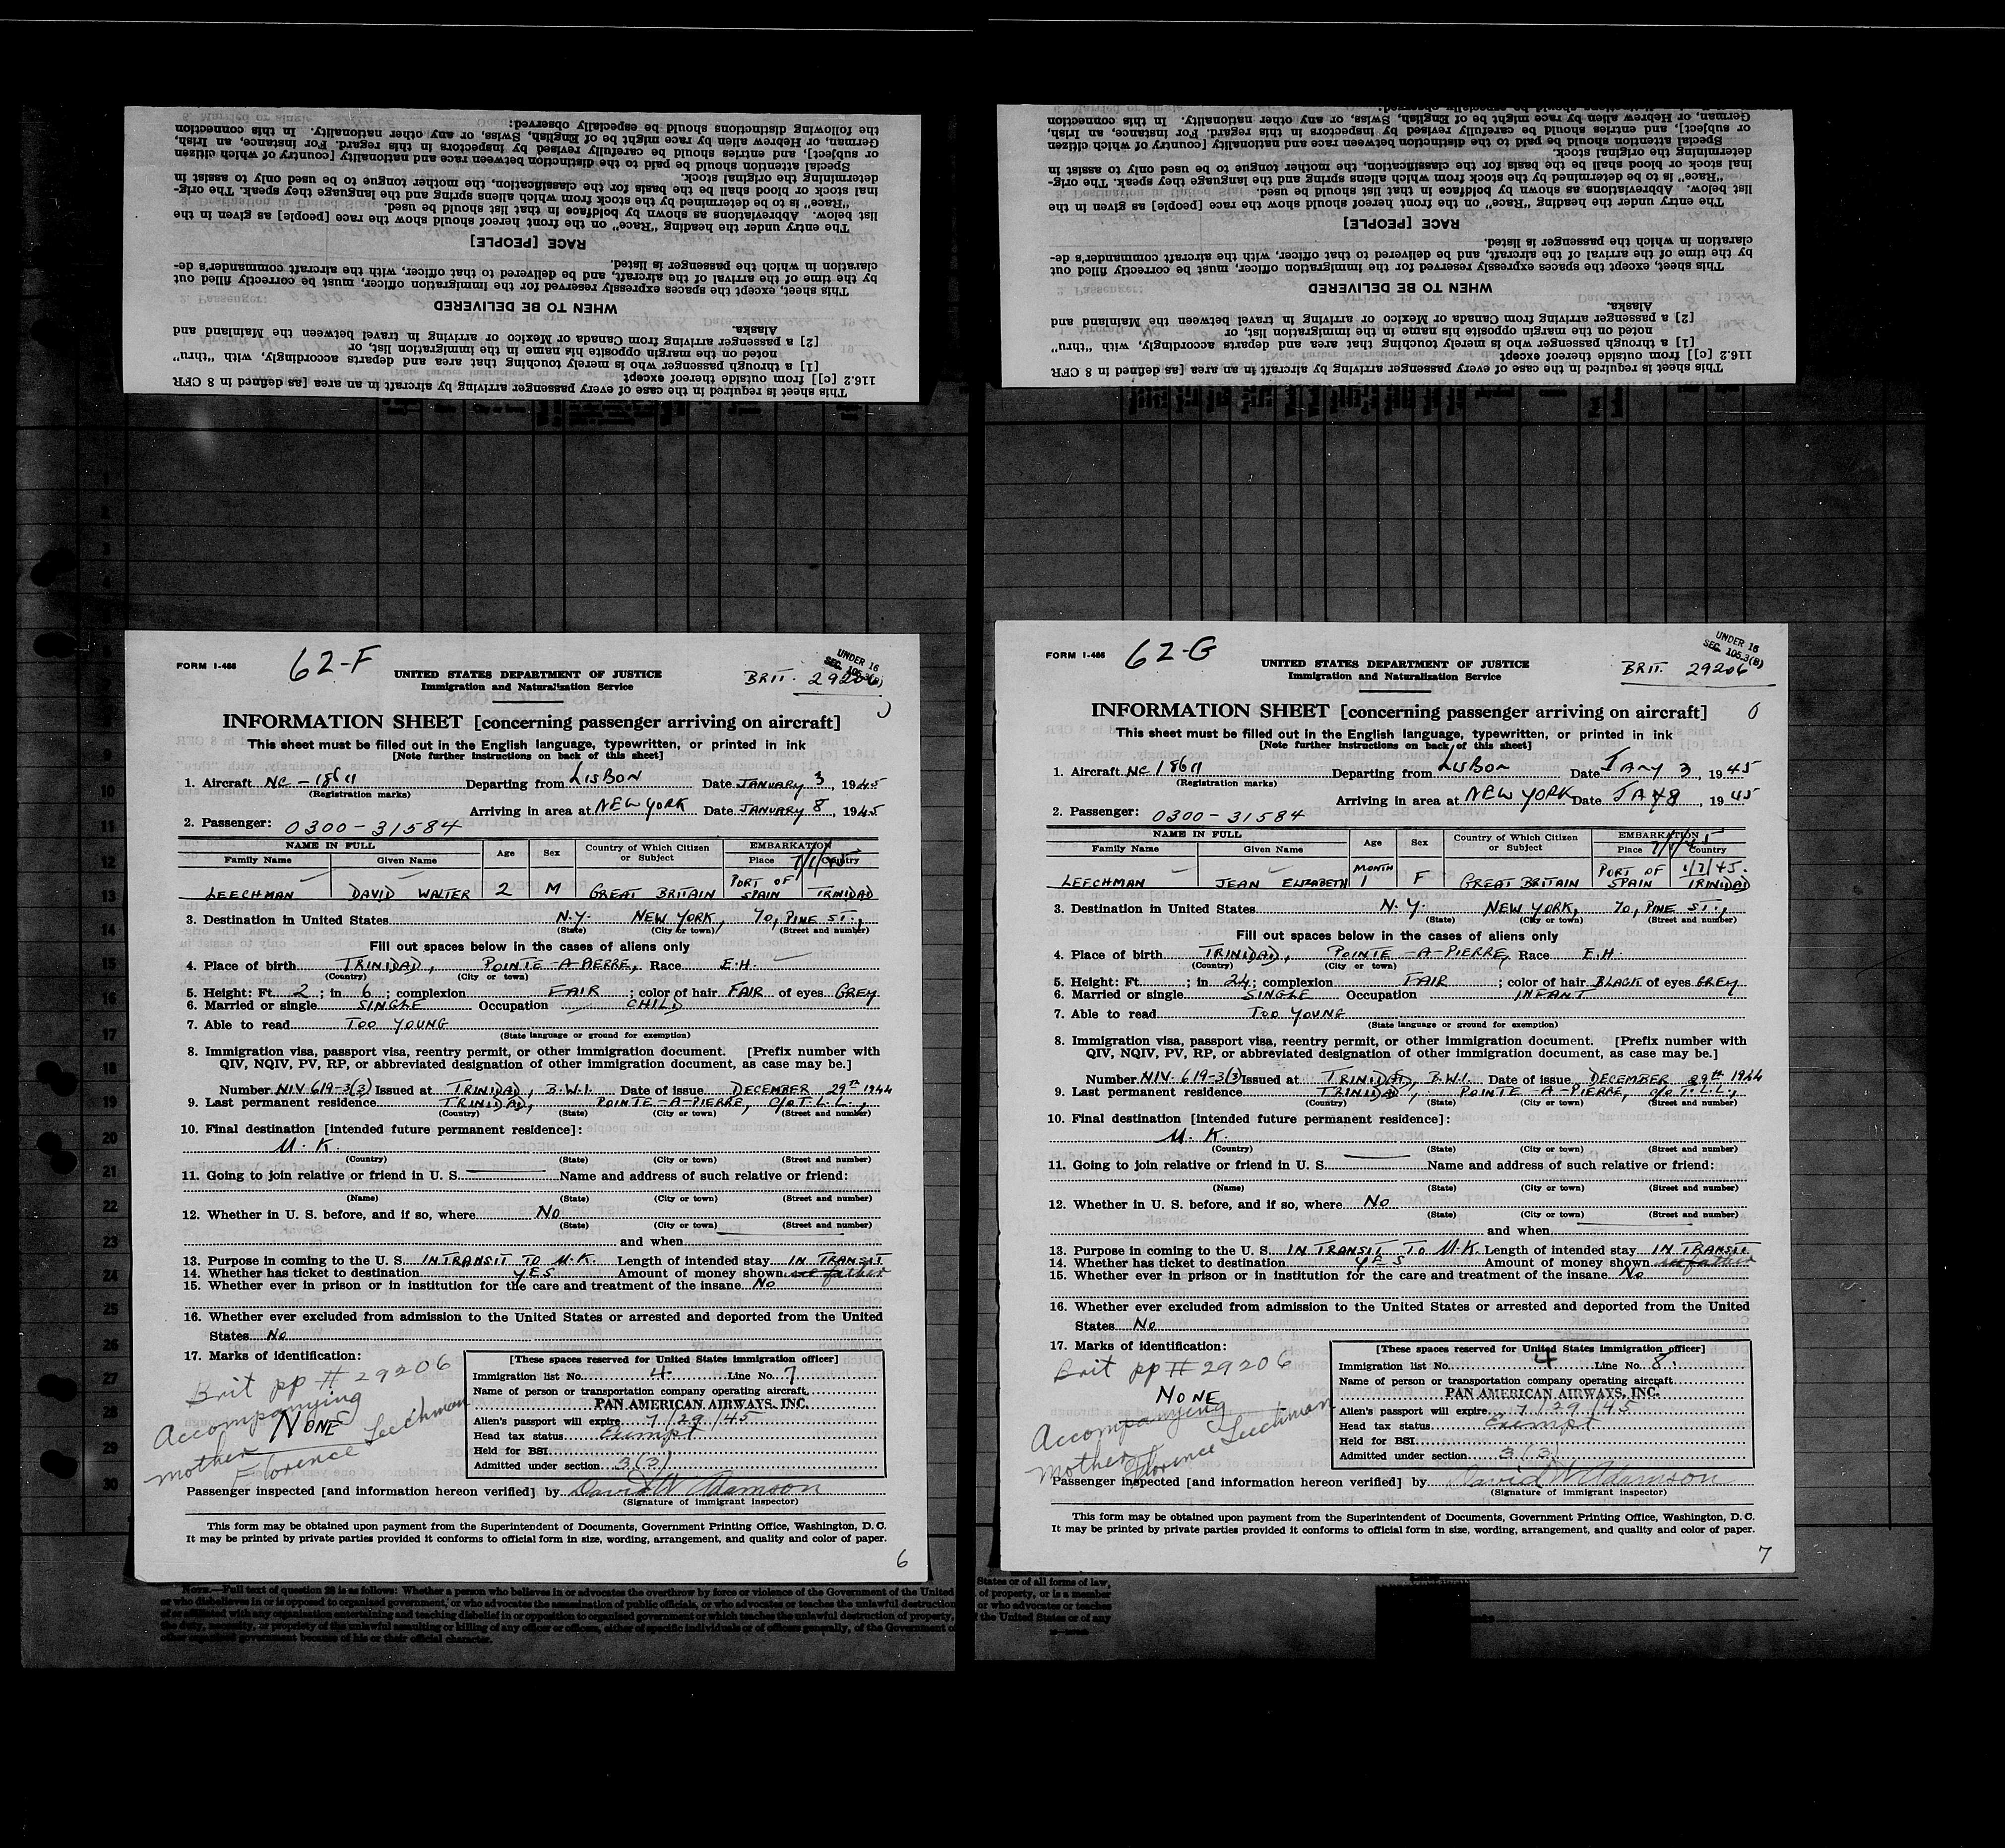 This sheet is required in the case of every passenger arriving by aircraft in an area [as defined in 8 CFR
116.2 [c]] from outside thereof except
[1] a through passenger who is merely touching that area and departs accordingly, with "thru"
noted on the margin opposite his name in the immigration list, or
[2] a passenger arriving from Canada or Mexico or arriving in travel between the Mainland and
Alaska.
WHEN TO BE DELIVERED
This sheet, except the spaces expressly reserved for the immigration officer, must be correctly filled out
by the time of the arrival of the aircraft, and be delivered to that officer, with the aircraft commander's de-
claration in which the passenger is listed.
RACE [PEOPLE]
The entry under the heading "Race" on the front hereof should show the race [people] as given in the
list below. Abbreviations as shown by boldface in that list should be used.
"Race" is to be determined by the stock from which aliens spring and the language they speak. The orig-
inal stock or blood shall be the basis for the classification, the mother tongue to be used only to assist in
determining the original stock.
Special attention should be paid to the distinction between race and nationality [country of which citizen
or subject], and entries should be carefully revised by inspectors in this regard. For instance, an Irish,
German, or Hebrew alien by race might be of English, Swiss, or any other nationality. In this connection
the following distinctions should be especially observed:
FORM I-466
62-F
UNDER 16
SEC. 105.3(B)
UNITED STATES DEPARTMENT OF JUSTICE
Immigration and Naturalization Service
BRIT. 29206
INFORMATION SHEET [concerning passenger arriving on aircraft]
This sheet must be filled out in the English language, typewritten, or printed in ink
[Note further instructions on back of this sheet]
1. Aircraft NC-18611 Departing from LISBON Date JANUARY 3, 1945
(Registration marks)
Arriving in area at NEW YORK Date JANUARY 8, 1945
2. Passenger: 0300-31584
NAME IN FULL Age Sex Country of Which Citizen or Subject EMBARKATION
Family Name Given Name Place Country
LEECHMAN DAVID WALTER 2 M GREAT BRITAIN PORT OF SPAIN TRINIDAD
3. Destination in United States N.Y. NEW YORK, 70, PINE ST.,
(State) (City or town) (Street and number)
Fill out spaces below in the cases of aliens only
4. Place of birth TRINIDAD, POINTE-A-PIERRE, Race E.H.
(Country) (City or town)
5. Height: Ft. 2; in 6; complexion FAIR; color of hair FAIR of eyes GREY
6. Married or single SINGLE Occupation CHILD
7. Able to read TOO YOUNG
(State language or ground for exemption)
8. Immigration visa, passport visa, reentry permit, or other immigration document. [Prefix number with
QIV, NQIV, PV, RP, or abbreviated designation of other immigration document, as case may be.]
Number NIV 619-3(3) Issued at TRINIDAD, B.W.I. Date of issue DECEMBER 29TH 1944
9. Last permanent residence TRINIDAD, POINTE-A-PIERRE, C/O T.L.L.,
(Country) (State) (City or town) (Street and number)
10. Final destination [intended future permanent residence]:
U.K.
(Country) (State) (City or town) (Street and number)
11. Going to join relative or friend in U. S. Name and address of such relative or friend:
(Name) (State) (City or town) (Street and number)
12. Whether in U. S. before, and if so, where NO
(State) (City or town) (Street and number)
and when
13. Purpose in coming to the U. S. IN TRANSIT TO U.K. Length of intended stay IN TRANSIT
14. Whether has ticket to destination YES Amount of money shown see father
15. Whether ever in prison or in institution for the care and treatment of the insane No
16. Whether ever excluded from admission to the United States or arrested and deported from the United
States No
17. Marks of identification:
Brit pp # 29206
Accompanying
NONE
mother Florence Leechman
[These spaces reserved for United States immigration officer]
Immigration list No. 4 Line No. 7
Name of person or transportation company operating aircraft
PAN AMERICAN AIRWAYS, INC.
Alien's passport will expire 7/29/45
Head tax status Exempt
Held for BSI
Admitted under section 3(3)
Passenger inspected [and information hereon verified] by David W Adamson
(Signature of immigrant inspector)
This form may be obtained upon payment from the Superintendent of Documents, Government Printing Office, Washington, D. C.
It may be printed by private parties provided it conforms to official form in size, wording, arrangement, and quality and color of paper.
6
This sheet is required in the case of every passenger arriving by aircraft in an area [as defined in 8 CFR
116.2 [c]] from outside thereof except
[1] a through passenger who is merely touching that area and departs accordingly, with "thru"
noted on the margin opposite his name in the immigration list, or
[2] a passenger arriving from Canada or Mexico or arriving in travel between the Mainland and
Alaska.
WHEN TO BE DELIVERED
This sheet, except the spaces expressly reserved for the immigration officer, must be correctly filled out
by the time of the arrival of the aircraft, and be delivered to that officer, with the aircraft commander's de-
claration in which the passenger is listed.
RACE [PEOPLE]
The entry under the heading "Race" on the front hereof should show the race [people] as given in the
list below. Abbreviations as shown by boldface in that list should be used.
"Race" is to be determined by the stock from which aliens spring and the language they speak. The orig-
inal stock or blood shall be the basis for the classification, the mother tongue to be used only to assist in
determining the original stock.
Special attention should be paid to the distinction between race and nationality [country of which citizen
or subject], and entries should be carefully revised by inspectors in this regard. For instance, an Irish,
German, or Hebrew alien by race might be of English, Swiss, or any other nationality. In this connection
the following distinctions should be especially observed:
FORM I-466
62-G
UNDER 16
SEC. 105.3(B)
UNITED STATES DEPARTMENT OF JUSTICE
Immigration and Naturalization Service
BRIT. 29206
INFORMATION SHEET [concerning passenger arriving on aircraft]
This sheet must be filled out in the English language, typewritten, or printed in ink
[Note further instructions on back of this sheet]
1. Aircraft NC 18611 Departing from LISBON Date JANY 3, 1945
(Registration marks)
Arriving in area at NEW YORK Date JAY 8, 1945
2. Passenger: 0300-31584
NAME IN FULL Age Sex Country of Which Citizen or Subject EMBARKATION
Family Name Given Name Place Country
LEECHMAN JEAN ELIZABETH MONTH 1 F GREAT BRITAIN PORT OF SPAIN 1/7/45. TRINIDAD
3. Destination in United States N.Y. NEW YORK, 70, PINE ST.,
(State) (City or town) (Street and number)
Fill out spaces below in the cases of aliens only
4. Place of birth TRINIDAD, POINTE-A-PIERRE, Race E.H.
(Country) (City or town)
5. Height: Ft. ; in 24; complexion FAIR; color of hair BLACK of eyes GREY
6. Married or single SINGLE Occupation INFANT
7. Able to read TOO YOUNG
(State language or ground for exemption)
8. Immigration visa, passport visa, reentry permit, or other immigration document. [Prefix number with
QIV, NQIV, PV, RP, or abbreviated designation of other immigration document, as case may be.]
Number NIV. 619-3(3) Issued at TRINIDAD, B.W.I. Date of issue DECEMBER 29TH 1944
9. Last permanent residence TRINIDAD, POINTE-A-PIERRE, C/O T.L.L.,
(Country) (State) (City or town) (Street and number)
10. Final destination [intended future permanent residence]:
U.K.
(Country) (State) (City or town) (Street and number)
11. Going to join relative or friend in U. S. Name and address of such relative or friend:
(Name) (State) (City or town) (Street and number)
12. Whether in U. S. before, and if so, where No
(State) (City or town) (Street and number)
and when
13. Purpose in coming to the U. S. IN TRANSIT TO U.K. Length of intended stay IN TRANSIT
14. Whether has ticket to destination YES Amount of money shown see father
15. Whether ever in prison or in institution for the care and treatment of the insane No
16. Whether ever excluded from admission to the United States or arrested and deported from the United
States No
17. Marks of identification:
Brit pp # 29206
NONE
Accompanying
mother Florence Leechman
[These spaces reserved for United States immigration officer]
Immigration list No. 4 Line No. 8.
Name of person or transportation company operating aircraft
PAN AMERICAN AIRWAYS, INC.
Alien's passport will expire 7/29/45
Head tax status Exempt
Held for BSI
Admitted under section 3(3)
Passenger inspected [and information hereon verified] by David W Adamson
(Signature of immigrant inspector)
This form may be obtained upon payment from the Superintendent of Documents, Government Printing Office, Washington, D. C.
It may be printed by private parties provided it conforms to official form in size, wording, arrangement, and quality and color of paper.
7
NOTE.—Full text of question 28 is as follows: Whether a person who believes in or advocates the overthrow by force or violence of the Government of the United
States or of all forms of law,
or who disbelieves in or is opposed to organized government, or who advocates the assassination of public officials, or who advocates or teaches the unlawful destruction
of property, or is a member
of or affiliated with any organization entertaining and teaching disbelief in or opposition to organized government or which teaches the unlawful destruction of property,
or who advocates or teaches
the duty, necessity, or propriety of the unlawful assaulting or killing of any officer or officers, either of specific individuals or of officers generally, of the Government of
the United States or of any
other organized government because of his or their official character.